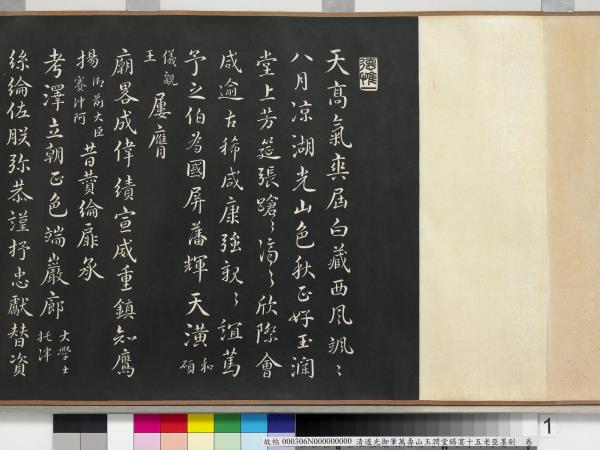 天高氣爽屆白藏西風颯〻
八月涼湖光山色秋正好玉瀾
堂上芳筵張蹌〻濟〻欣際會
咸逾古稀咸康強親〻誼篤
予之伯為國屏藩輝天潢和碩
儀親王屢膺
廟畧成偉績宣威重鎮知鷹
揚御前大臣賽沖阿昔贊綸扉承
考澤立朝正色端巖廊大學士托津
絲綸佐朕弥恭謹抒忠獻替資
故帖 000306N000000000 清道光御筆萬壽山玉潤堂錫宴十五老臣墨刻 卷
1